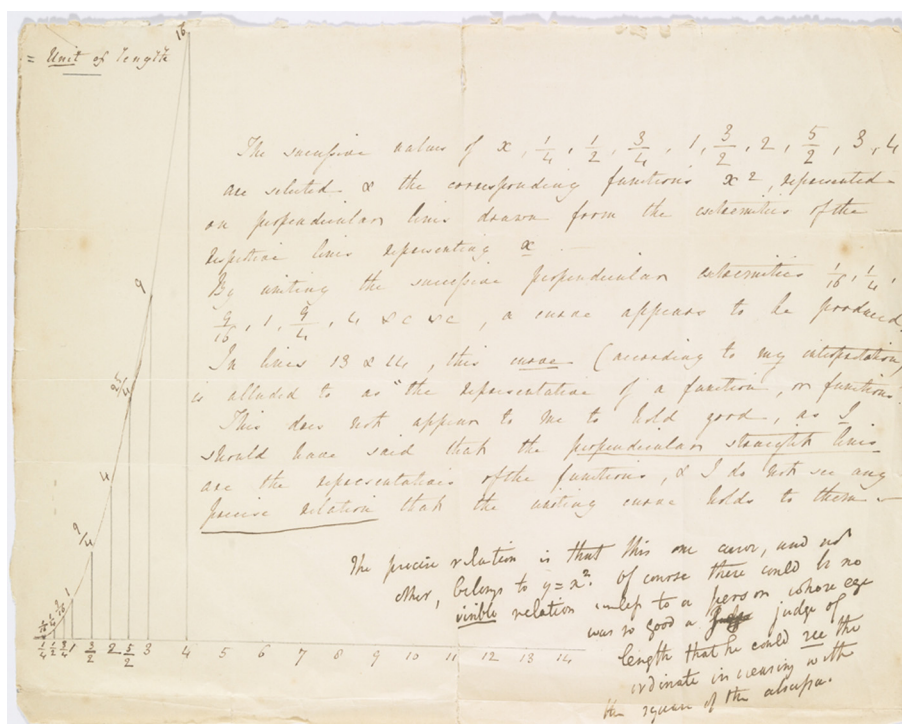 16
= Unit of length
The successive values of x, 1/4, 1/2, 3/4, 1, 3/2, 2, 5/2, 3, 4
are selected & the corresponding functions x², represented
on perpendicular lines drawn from the extremities of the
respective lines representing x
By uniting the successive perpendicular extremities 1/16, 1/4,
9/16, 1, 9/4, 4 &c &c, a curve appears to be produced,
In lines 13 & 14, this curve (according to my interpretation)
is alluded to as "the representation of a function, or functions
This does not appear to me to hold good, as I
should have said that the perpendicular straight lines
are the representations of the functions, & I do not see any
precise relation that the uniting curve holds to them –
The precise relation is that this one curve, and no
other, belongs to y = x². Of course there could be no
visible relation unless to a person whose eye
was so good a judge of
length that he could see the
ordinate increasing with
the square of the abscissa.
9
25/4
4
9/4
1
9/16
1/4
1/4 1/2 3/4 1 3/2 2 5/2 3 4 5 6 7 8 9 10 11 12 13 14